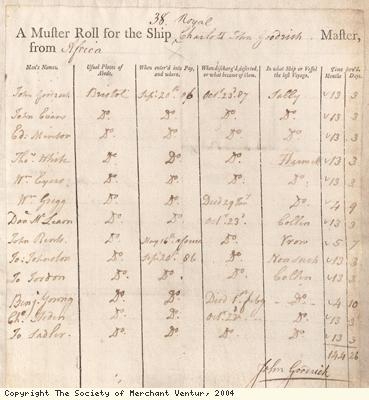 38. Royal
A Muster Roll for the Ship Charlotte John Goodrich Master,
from Africa
Men's Names. Usual Places of Abode. When enter'd into Pay, and where. When discharg'd, deserted, or what became of them. In what Ship or Vessel the last Voyage. Time serv'd. Months Days.
John Goodrich Bristol Sept. 20th 86 Oct. 23d 87 Sally 13 3
John Evans Do. Do. Do. Do. 13 3
Ed. Minton Do. Do. Do. Do. 13 3
Thos. White Do. Do. Do. 13 3
Wm. Eyers Do. Do. Do. Do. 13 3
Wm. Gregg Do. Do. Died Do. 4 9
Danl. McLearn Do. Do. Oct. 23d. Collin 13 3
John May 16th Do. 5 7
Jo: Johnston Do. Sept. 20th 86 Do. 13 3
Jo Gordon Do. Do. Do. Collin 13 3
Benj. Young Do. Do. Died Do. 4 10
Do. Do. Oct. 23d Do. 13 3
Jo Sadler Do. Do. Do. Do. 13 3
144 26
John Goodrich
Copyright The Society of Merchant Ventur, 2004